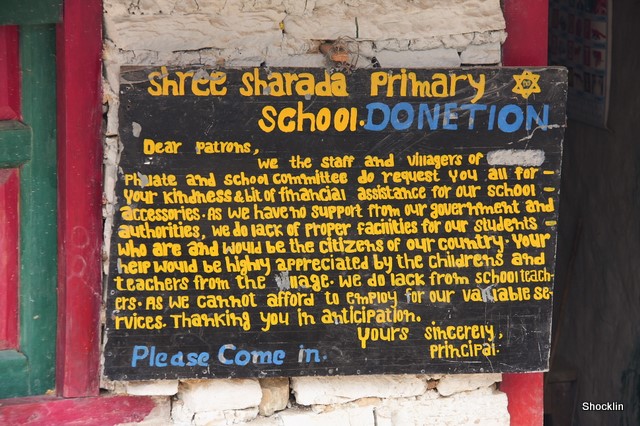 Shree Sharada Primary
School. DONETION
Dear Patrons,
We the staff and villagers of
Phalate and school committee do request you all for -
your kindness & bit of financial assistance for our school -
accessories. As we have no support from our government and
authorities, we do lack of proper facilities for our students -
who are and would be the citizens of our country. Your
help would be highly appreciated by the childrens and
teachers from the village. We do lack from school teach-
ers. As we cannot afford to employ for our valuable se-
rvices. Thanking you in anticipation.
Yours sincerely,
Principal.
Please Come in.
Shocklin